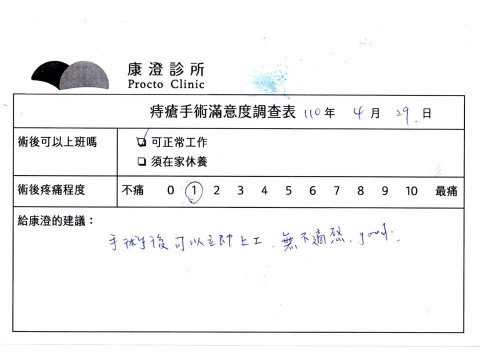 康澄診所
Procto Clinic
痔瘡手術滿意度調查表 110 年 4 月 29 日
術後可以上班嗎
可正常工作
須在家休養
術後疼痛程度 不痛 0 1 2 3 4 5 6 7 8 9 10 最痛
給康澄的建議：
手術後可以立即上工，無不適感，good.